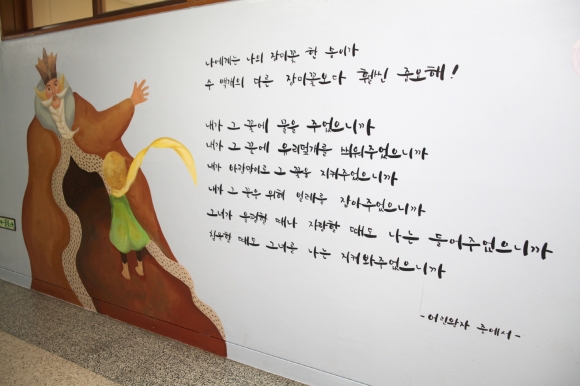 나에게는 나의 장미꽃 한 송이가
수 백개의 다른 장미꽃보다 훨씬 중요해!
내가 그 꽃에 물을 주었으니까
내가 그 꽃에 유리덮개를 씌워주었으니까
내가 바람막이로 그 꽃을 지켜주었으니까
내가 그 꽃을 위해 벌레를 잡아주었으니까
그녀가 불평할 때나 자랑할 때도 나는 들어주었으니까
침묵할 때도 그녀를 나는 지켜봐주었으니까
-어린왕자 중에서-